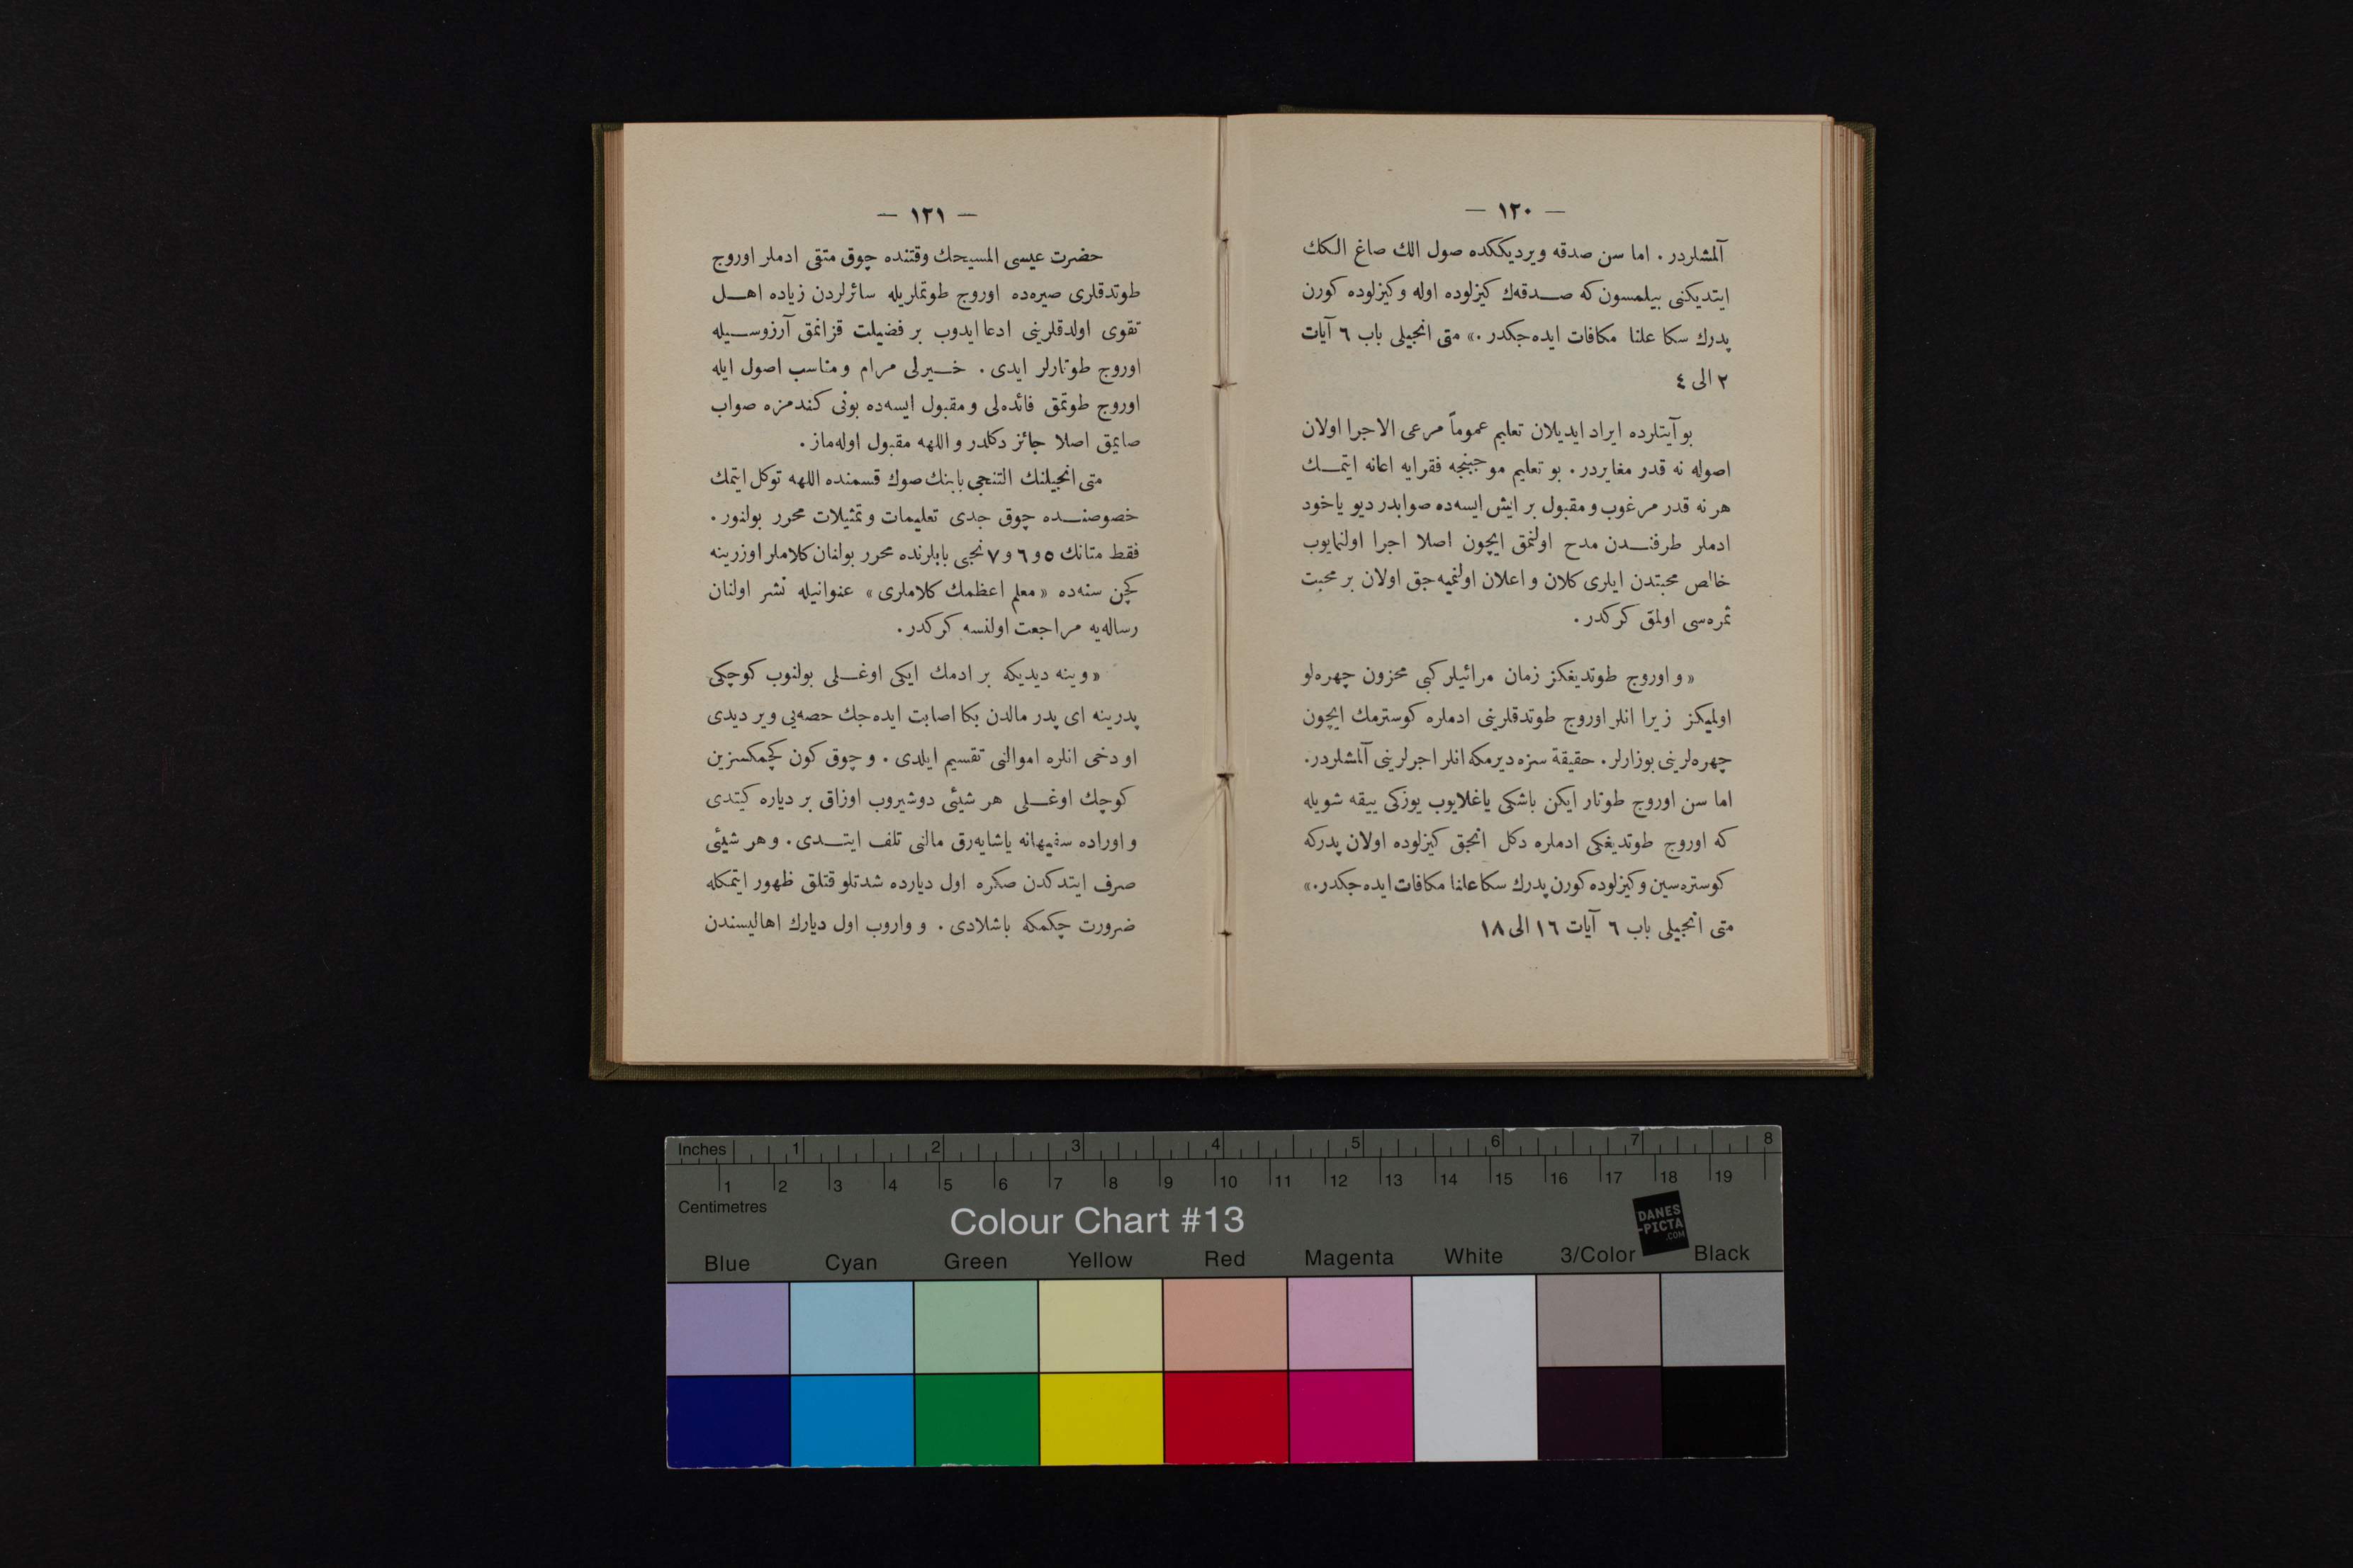 — ١٢٠ —
آلمشلردر. اما سن صدقه ويرديككده صول الك صاغ الكك
ايتديكنى بيلمسون كه صدقه‌ك كيزلوده اوله وكيزلوده كورن
پدرك سكا علنا مكافات ايده‌جكدر.» متى انجيلى باب ٦ آيات
٢ الى ٤
بو آيتلرده ايراد ايديلان تعليم عموماً مرعى الاجرا اولان
اصوله نه قدر مغايردر. بو تعليم موجبنجه فقرايه اعانه ايتمك
هر نه قدر مرغوب و مقبول بر ايش ايسه‌ده صوابدر ديو ياخود
ادملر طرفندن مدح اولنمق ايچون اصلا اجرا اولنمايوب
خالص محبتدن ايلرى كلان و اعلان اولنميه‌جق اولان بر محبت
ثمره‌سى اولمق كركدر.
«و اوروج طوتديغكز زمان مرائيلر كبى محزون چهره‌لو
اولميكز زيرا انلر اوروج طوتدقلرينى ادملره كوسترمك ايچون
چهره‌لرينى بوزارلر. حقيقة سزه ديرمكه انلر اجرلرينى آلمشلردر.
اما سن اوروج طوتار ايكن باشكى ياغلايوب يوزكى ييقه شويله
كه اوروج طوتديغكى ادملره دكل انجق كيزلوده اولان پدركه
كوستره‌سين وكيزلوده كورن پدرك سكا علنا مكافات ايده‌جكدر.»
متى انجيلى باب ٦ آيات ١٦ الى ١٨
— ١٢١ —
حضرت عيسى المسيحك وقتنده چوق متقى ادملر اوروج
طوتدقلرى صيره‌ده اوروج طوتملريله سائرلردن زياده اهل
تقوى اولدقلرينى ادعا ايدوب بر فضيلت قزانمق آرزوسيله
اوروج طوتارلر ايدى. خيرلى مرام و مناسب اصول ايله
اوروج طوتمق فائده‌لى و مقبول ايسه‌ده بونى كندمزه صواب
صايمق اصلا جائز دكلدر و اللهه مقبول اوله‌ماز.
متى انجيلنك التنجى بابنك صوك قسمنده اللهه توكل ايتمك
خصوصنده چوق جدى تعليمات و تمثيلات محرر بولنور.
فقط متانك ٥ و ٦ و ٧ نجى بابلرنده محرر بولنان كلاملر اوزرينه
كچن سنه‌ده «معلم اعظمك كلاملرى» عنوانيله نشر اولنان
رساله‌يه مراجعت اولنسه كركدر.
«وينه ديديكه بر ادمك ايكى اوغلى بولنوب كوچكى
پدرينه اى پدر مالدن بكا اصابت ايده‌جك حصه‌يى وير ديدى
او دخى انلره اموالنى تقسيم ايلدى. و چوق كون كچمكسزين
كوچك اوغلى هر شيئى دوشيروب اوزاق بر دياره كيتدى
و اوراده سفيهانه ياشايه‌رق مالنى تلف ايتدى. و هر شيئى
صرف ايتدكدن صكره اول ديارده شدتلو قتلق ظهور ايتمكله
ضرورت چكمكه باشلادى. و واروب اول ديارك اهاليسندن
Inches 1 2 3 4 5 6 7 8
1 2 3 4 5 6 7 8 9 10 11 12 13 14 15 16 17 18 19
Centimetres
Colour Chart #13
DANES
-PICTA
.COM
Blue Cyan Green Yellow Red Magenta White 3/Color Black